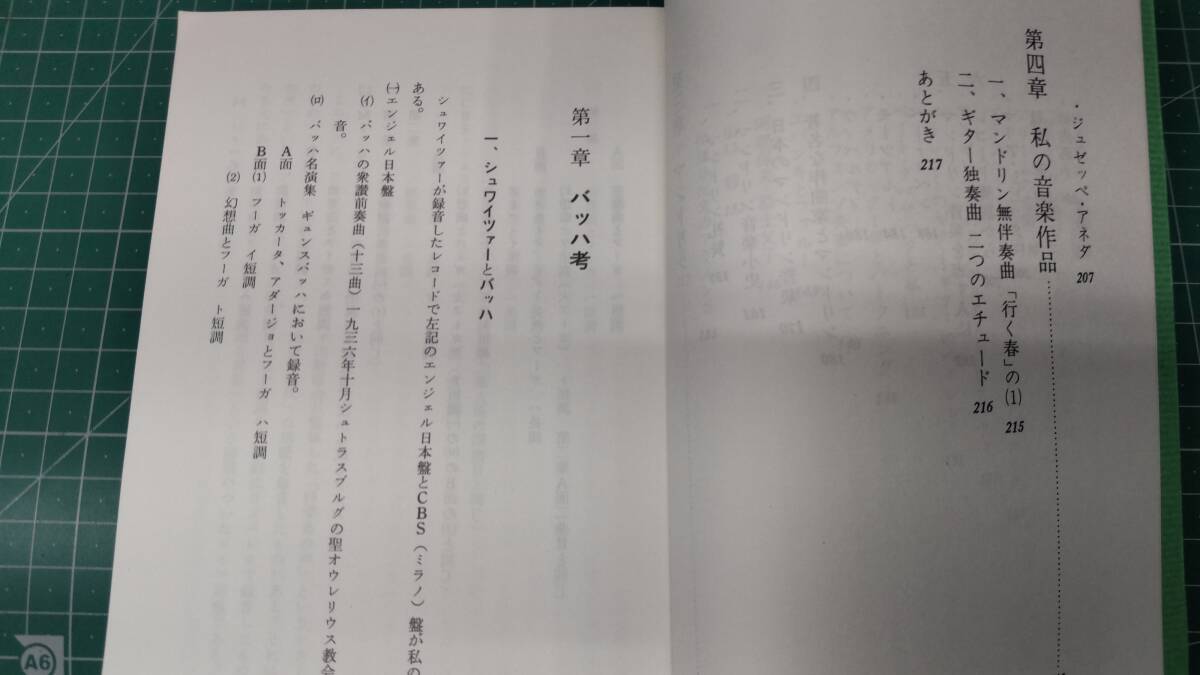 ・ジュゼッペ・アネダ 207
第四章 私の音楽作品
一、マンドリン無伴奏曲「行く春」の(1) 215
二、ギター独奏曲 二つのエチュード 216
あとがき 217
第一章 バッハ考
一、シュワイツァーとバッハ
シュワイツァーが録音したレコードで左記のエンジェル日本盤とCBS(ミラノ)盤が私の
ある。
㈠エンジェル日本盤
(イ) バッハの衆讃前奏曲(十三曲)一九三六年十月シュトラスブルグの聖オウレリウス教会
音。
(ロ) バッハ名演集 ギュンスバッハにおいて録音。
A面 トッカータ、アダージョとフーガ ハ短調
B面(1) フーガ イ短調
(2) 幻想曲とフーガ ト短調
A6